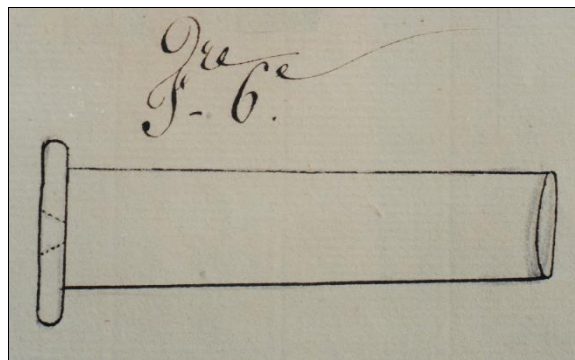 Fre 6e.